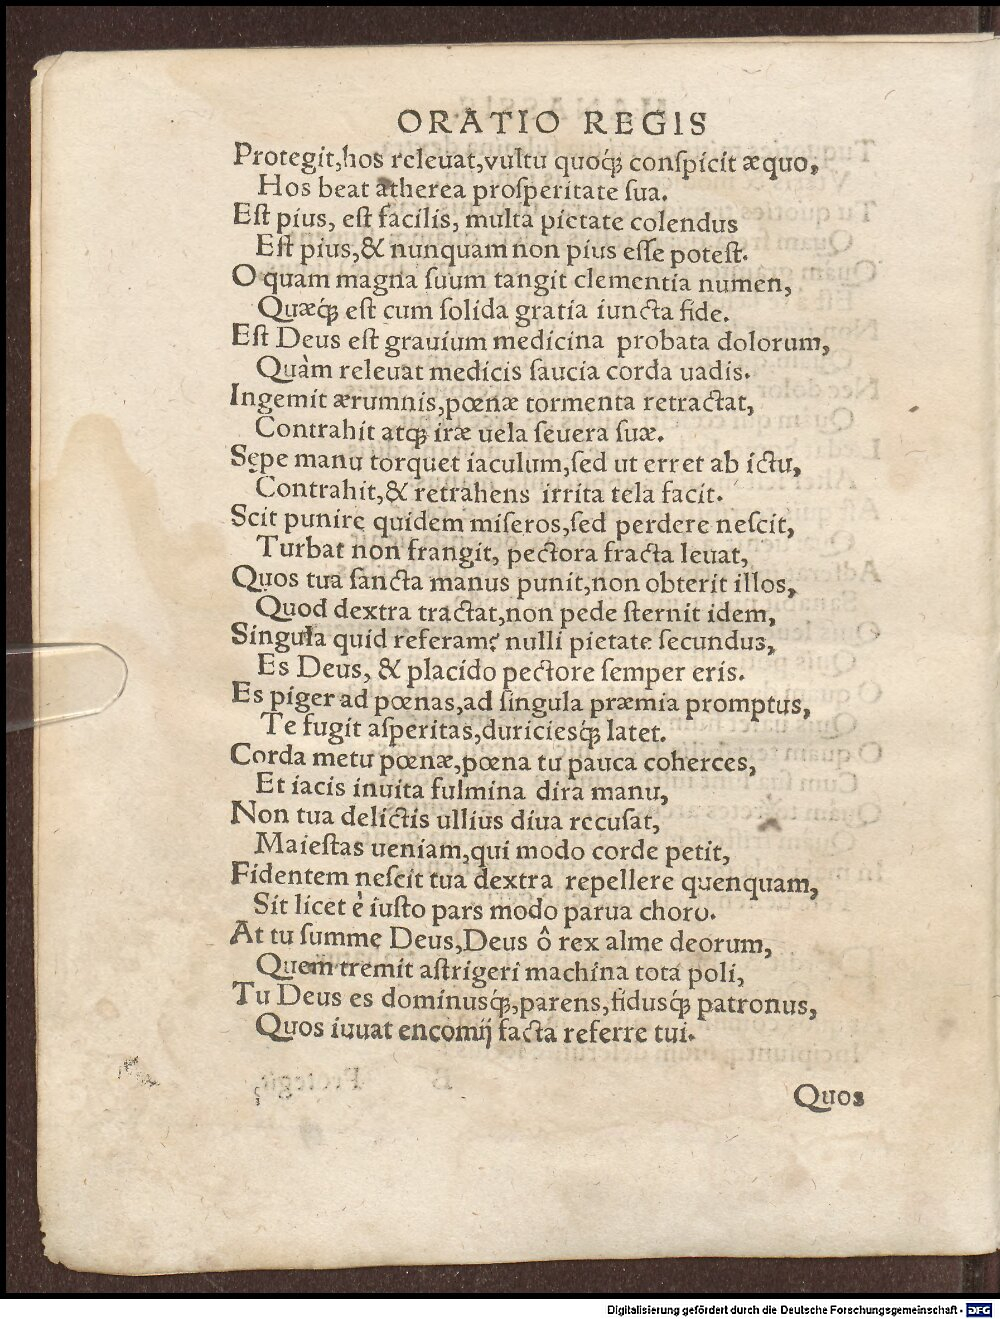 ORATIO REGIS
Protegit,hos releuat,vultu quoq́ꝫ conſpicit æquo,
Hos beat ætherea proſperitate ſua.
Eſt pius, eſt facilis, multa pietate colendus
Eſt pius,& nunquam non pius eſſe poteſt.
O quam magna ſuum tangit clementia numen,
Quæq́ꝫ eſt cum ſolida gratia iuncta fide.
Eſt Deus eſt grauium medicina probata dolorum,
Quàm releuat medicis ſaucia corda uadis.
Ingemit ærumnis,pœnæ tormenta retractat,
Contrahit atqꝫ iræ uela ſeuera ſuæ.
Sępe manu torquet iaculum,ſed ut erret ab ictu,
Contrahit,& retrahens irrita tela facit.
Scit punire quidem miſeros,ſed perdere neſcit,
Turbat non frangit, pectora fracta leuat,
Quos tua ſancta manus punit,non obterit illos,
Quod dextra tractat,non pede ſternit idem,
Singula quid referam? nulli pietate ſecundus,
Es Deus, & placido pectore ſemper eris.
Es piger ad pœnas,ad ſingula præmia promptus,
Te fugit aſperitas,duriciesq́ꝫ latet.
Corda metu pœnæ,pœna tu pauca coherces,
Et iacis inuita fulmina dira manu,
Non tua delictis ullius diua recuſat,
Maieſtas ueniam,qui modo corde petit,
Fidentem neſcit tua dextra repellere quenquam,
Sit licet è iuſto pars modo parua choro.
At tu ſumme Deus,Deus ô rex alme deorum,
Quem tremit aſtrigeri machina tota poli,
Tu Deus es dominusq́ꝫ,parens,fidusq́ꝫ patronus,
Quos iuuat encomij facta referre tui.
Quos
Digitalisierung gefördert durch die Deutsche Forschungsgemeinschaft - DFG